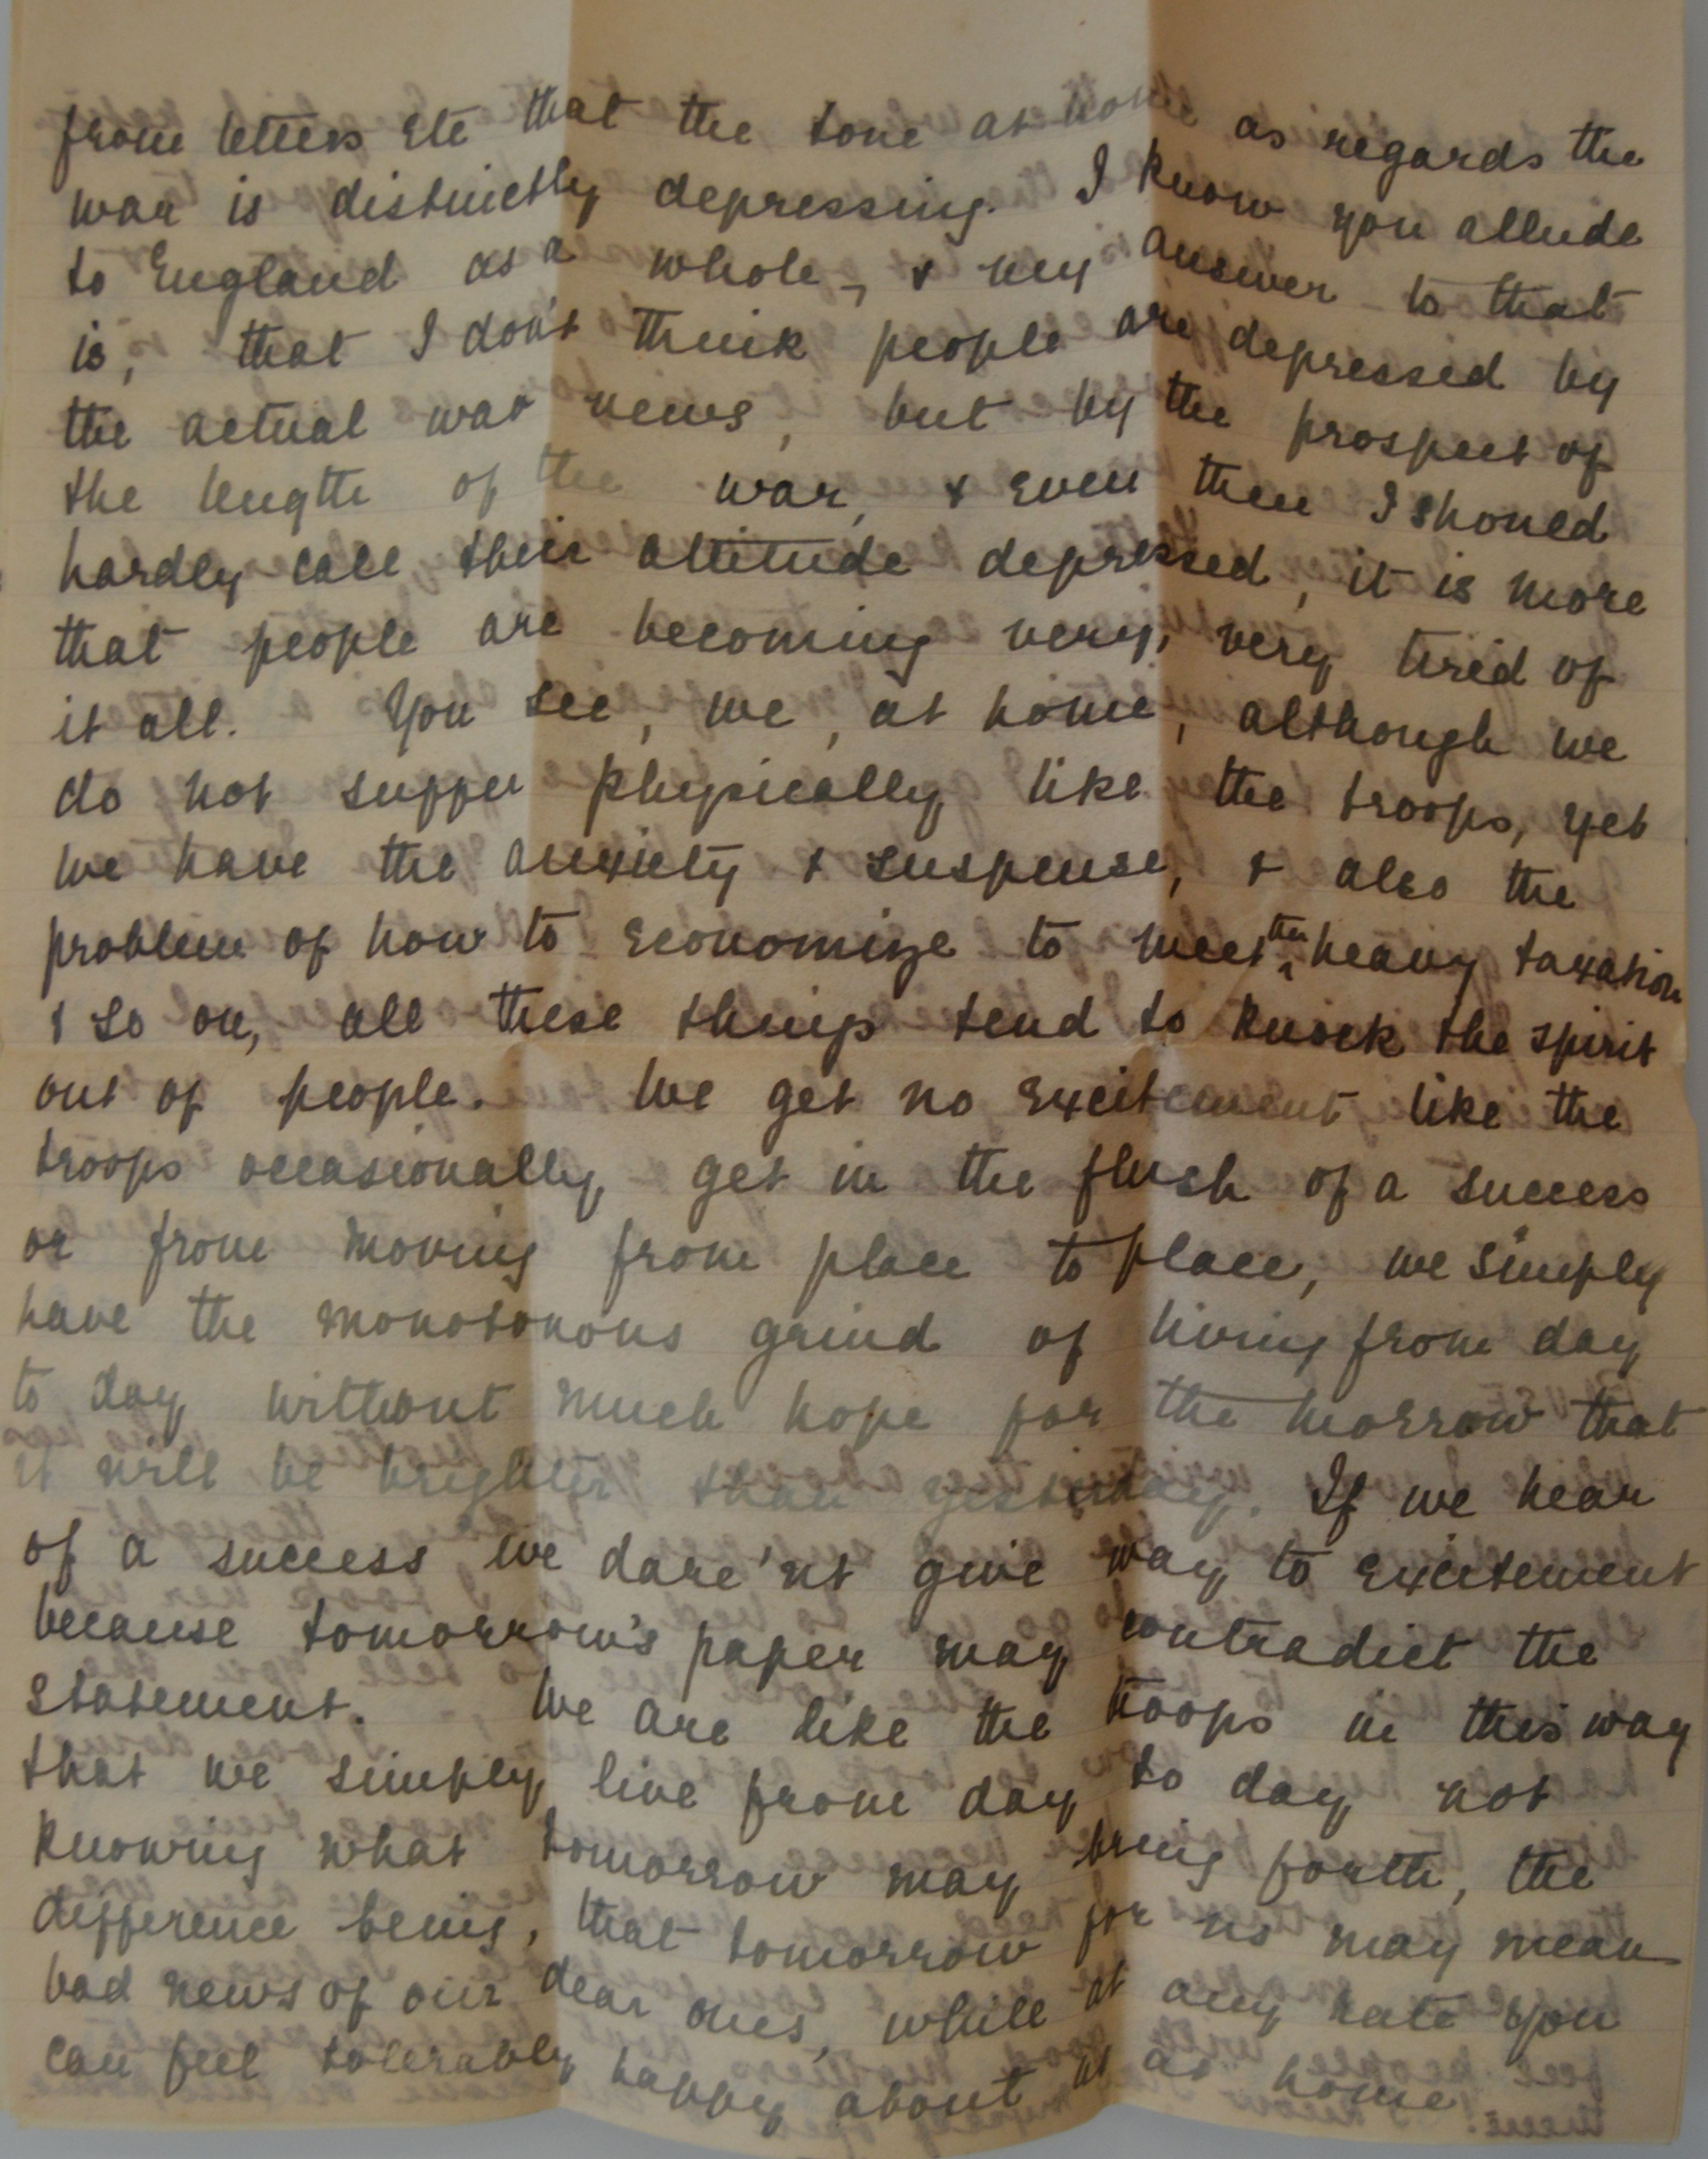 from letters etc that the tone at home as regards the
war is distinctly depressing. I know you allude
to England as a whole, & my answer to that
is, that I don't think people are depressed by
the actual war news, but by the prospect of
the length of the war, & even then I should
hardly call their attitude depressed, it is more
that people are becoming very, very tired of
it all. You see, we, at home, although we
do not suffer physically like the troops, yet
we have the anxiety & suspense, & also the
problem of how to economize to meet the heavy taxation
& so on, all these things tend to knock the spirit
out of people. We get no excitement like the
troops occasionally get in the flush of a success
or from moving from place to place, we simply
have the monotonous grind of living from day
to day without much hope for the morrow that
it will be brighter than yesterday. If we hear
of a success we dare'nt give way to excitement
because tomorrow's paper may contradict the
statement. We are like the troops in this way
that we simply live from day to day not
knowing what tomorrow may bring forth, the
difference being, that tomorrow for us may mean
bad news of our dear ones, while at any rate you
can feel tolerably happy about us at home